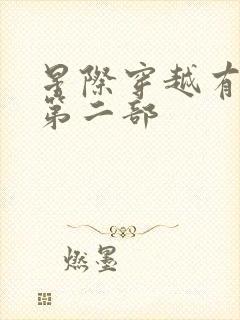 星際穿越有
第二部
燃墨